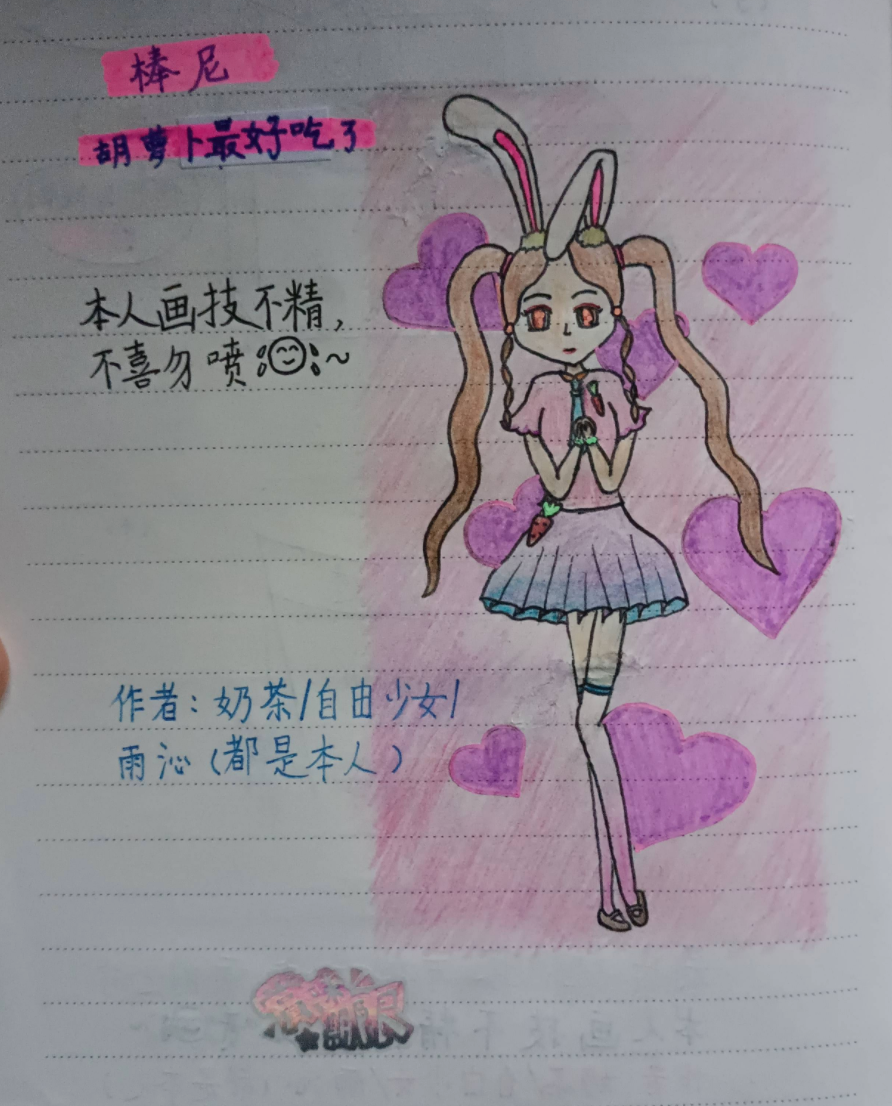 棒尼
胡萝卜最好吃了
本人画技不精，
不喜勿喷~
作者：奶茶/自由少女/
雨沁（都是本人）